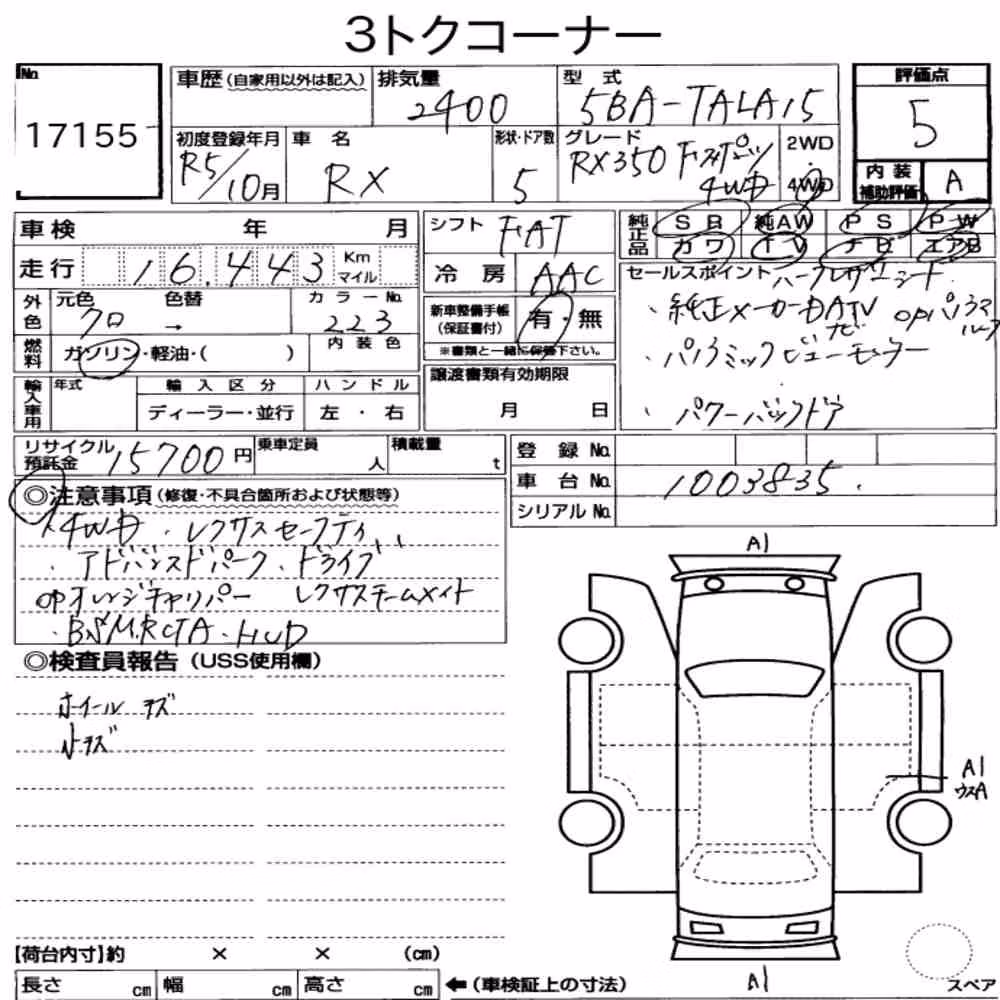 3トクコーナー
No. 17155
車歴 (自家用以外は記入) 排気量 2400 型式 5BA-TALA15 評価点 5
初度登録年月 R5/10月 車名 RX 形状・ドア数 5 グレード RX350 Fスポーツ 4WD 2WD・4WD
内装補助評価 A
車検 年 月 シフト FAT 純正品 SR 純AW PS P-W
カワ TV ナビ エアB
走行 16,443 Km マイル 冷房 AAC
セールスポイント ハーフレザーシート
外色 元色 クロ 色替 → カラーNo. 223
新車整備手帳(保証書付) 有・無
※書類と一緒に保管下さい。
・純正メーカーDATV ナビ OPパノラマルーフ
燃料 ガソリン・軽油・( ) 内装色
・パノラミックビューモニター
輸入車用 年式 輸入区分 ハンドル
ディーラー・並行 左・右
譲渡書類有効期限
月 日
・パワーバックドア
リサイクル預託金 15700円 乗車定員 人 積載量 t
登録No.
車台No. 1003835
シリアルNo.
◎注意事項 (修復・不具合箇所および状態等)
4WD ・レクサスセーフティ
・アドバンスドパーク ・ドライブ
OPオレンジキャリパー レクサスチームメイト
・BSM.RCTA・HUD
◎検査員報告 (USS使用欄)
ホイール キズ
小キズ
A1
A1
ウスA
A1
スペア
【荷台内寸】約 × × (cm)
長さ cm 幅 cm 高さ cm ←(車検証上の寸法)